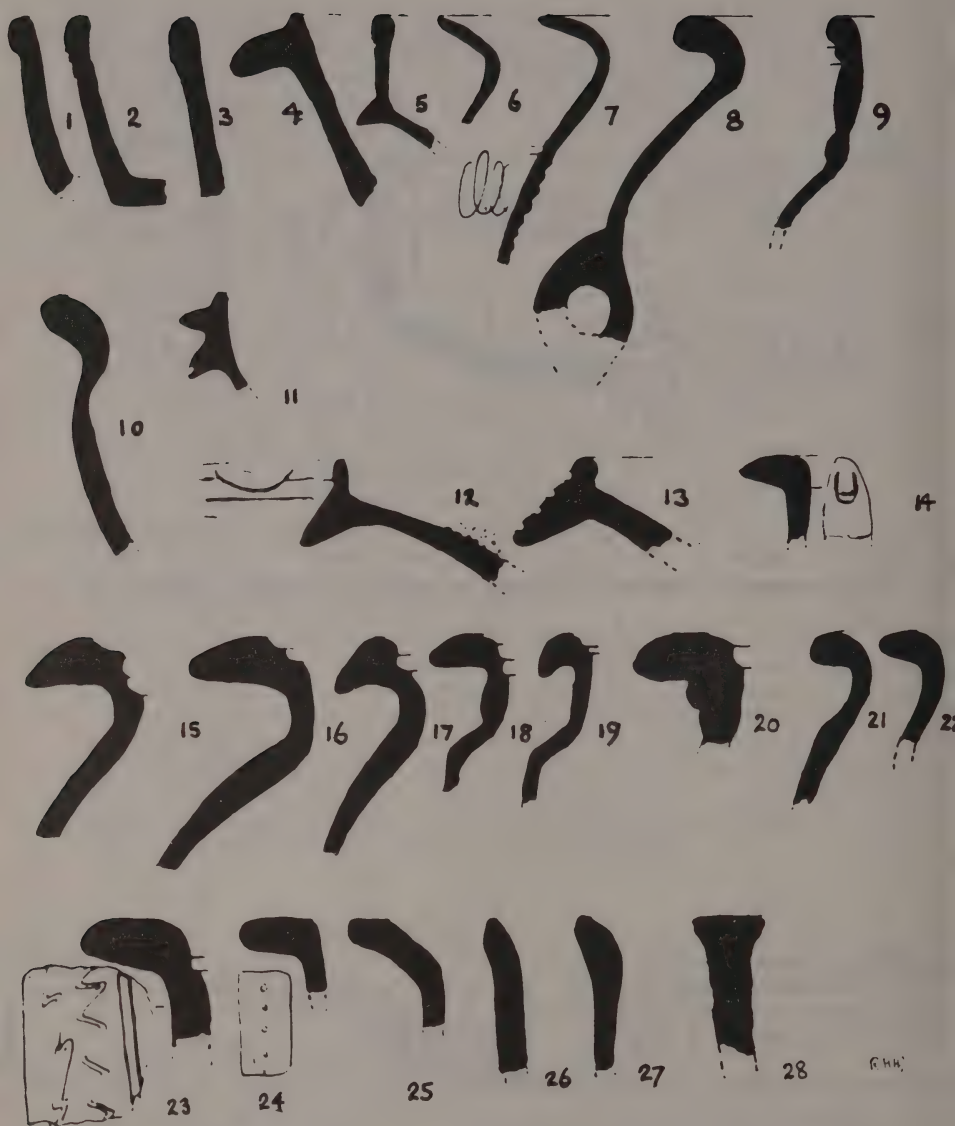 1 2 3 4 5 6 7 8 9
10 11 12 13 14
15 16 17 18 19 20 21 22
23 24 25 26 27 28